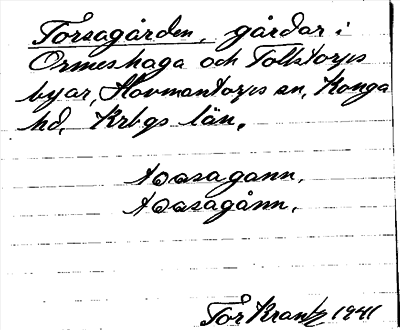 Torsagården, gårdar i
Ormeshaga och Tollstorps
byar, Hovmantorps sn, Konga
hd, Krbgs län.
tɷɷsagann,
tɷɷsagånn,
Tor Krantz 1941